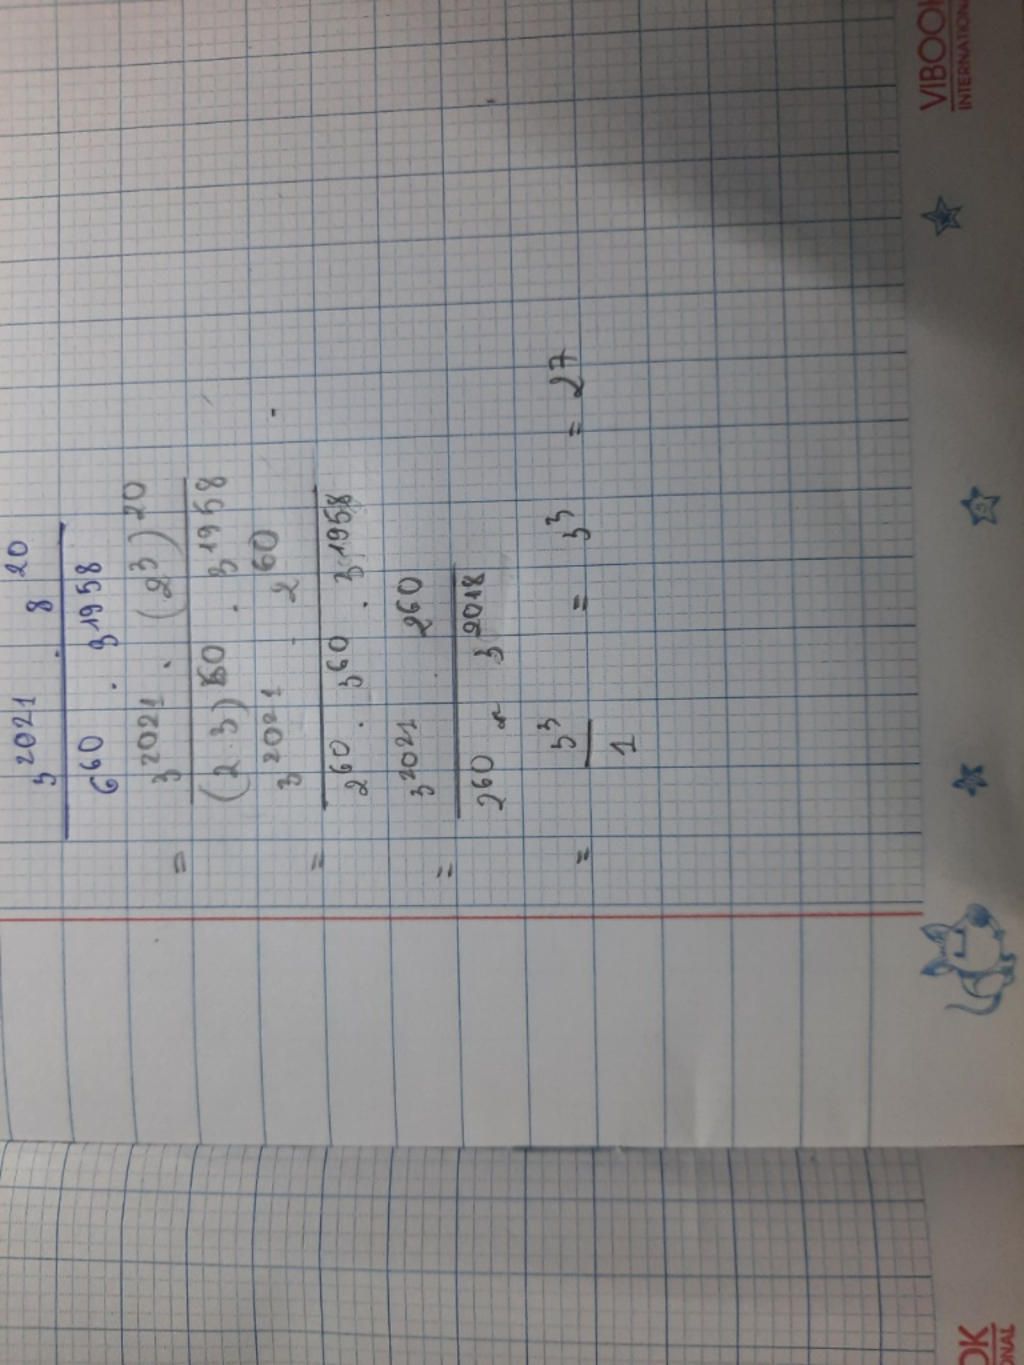 3^2021 . 8^20
6^60 . 3^1958
= 3^2021 . (2^3)^20
(2.3)^60 . 3^1958
= 3^2021 . 2^60
2^60 . 3^60 . 3^1958
= 3^2021 . 2^60
2^60 . 3^2018
= 3^3 = 3^3 = 27
1
VIBOOK
INTERNATIONAL